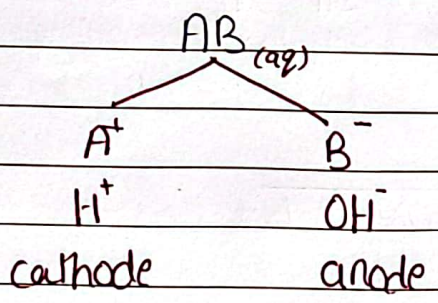 AB(aq)
A⁺ B⁻
H⁺ OH⁻
cathode anode